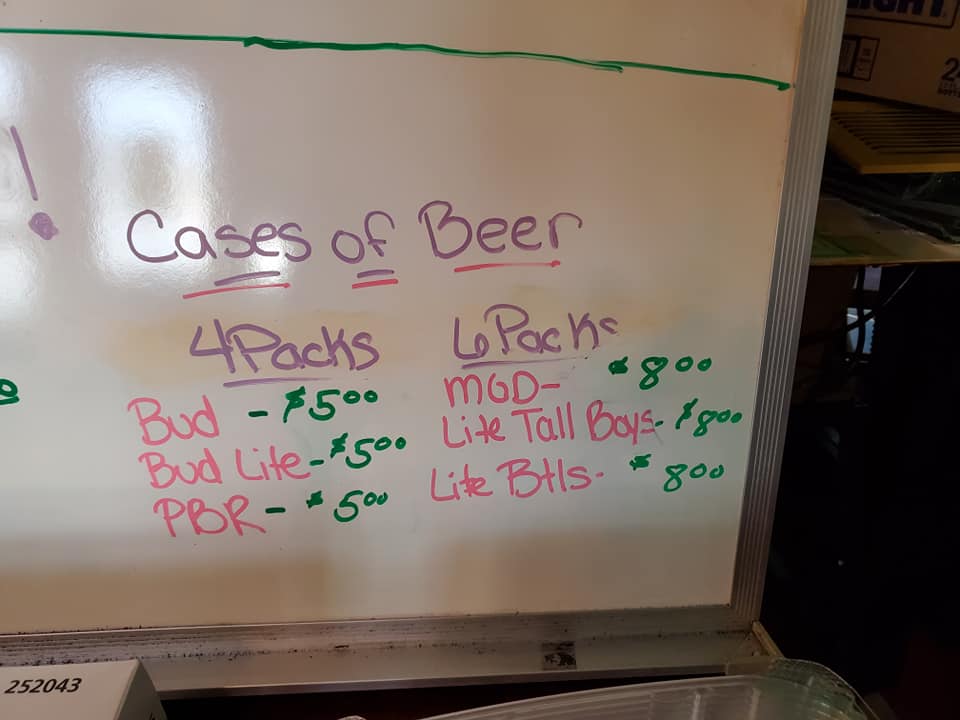 !
Cases of Beer
4Packs
Bud - $5⁰⁰
Bud Lite - $5⁰⁰
PBR - $5⁰⁰
6Packs
MGD- $8⁰⁰
Lite Tall Boys- $8⁰⁰
Lite Btls- $8⁰⁰
252043
24